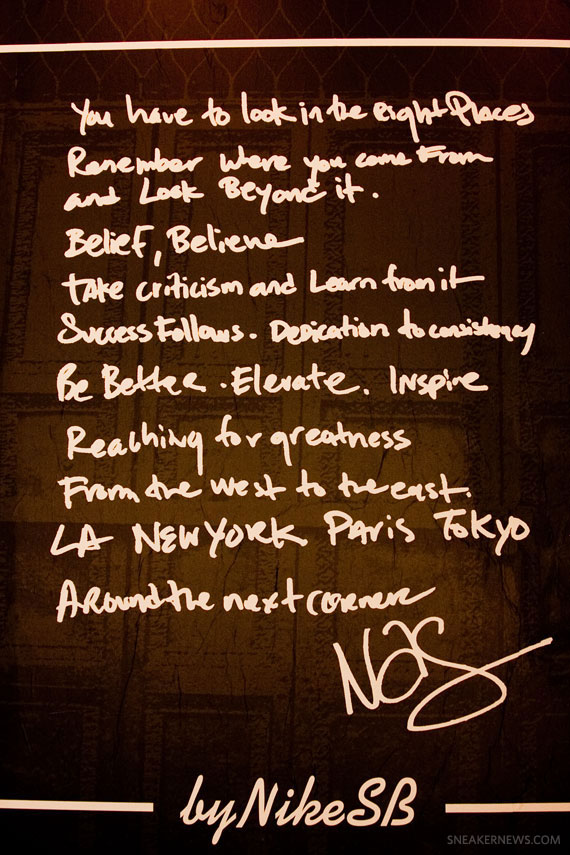 You have to look in the right Places
Remember where you come From
and Look Beyond it.
Belief, Believe
Take criticism and Learn from it
Success Follows. Dedication to consistency
Be Better. Elevate. Inspire
Reaching for greatness
From the west to the east.
LA NEW YORK PARIS TOKYO
Around the next corner
Nas
by Nike SB
SNEAKERNEWS.COM